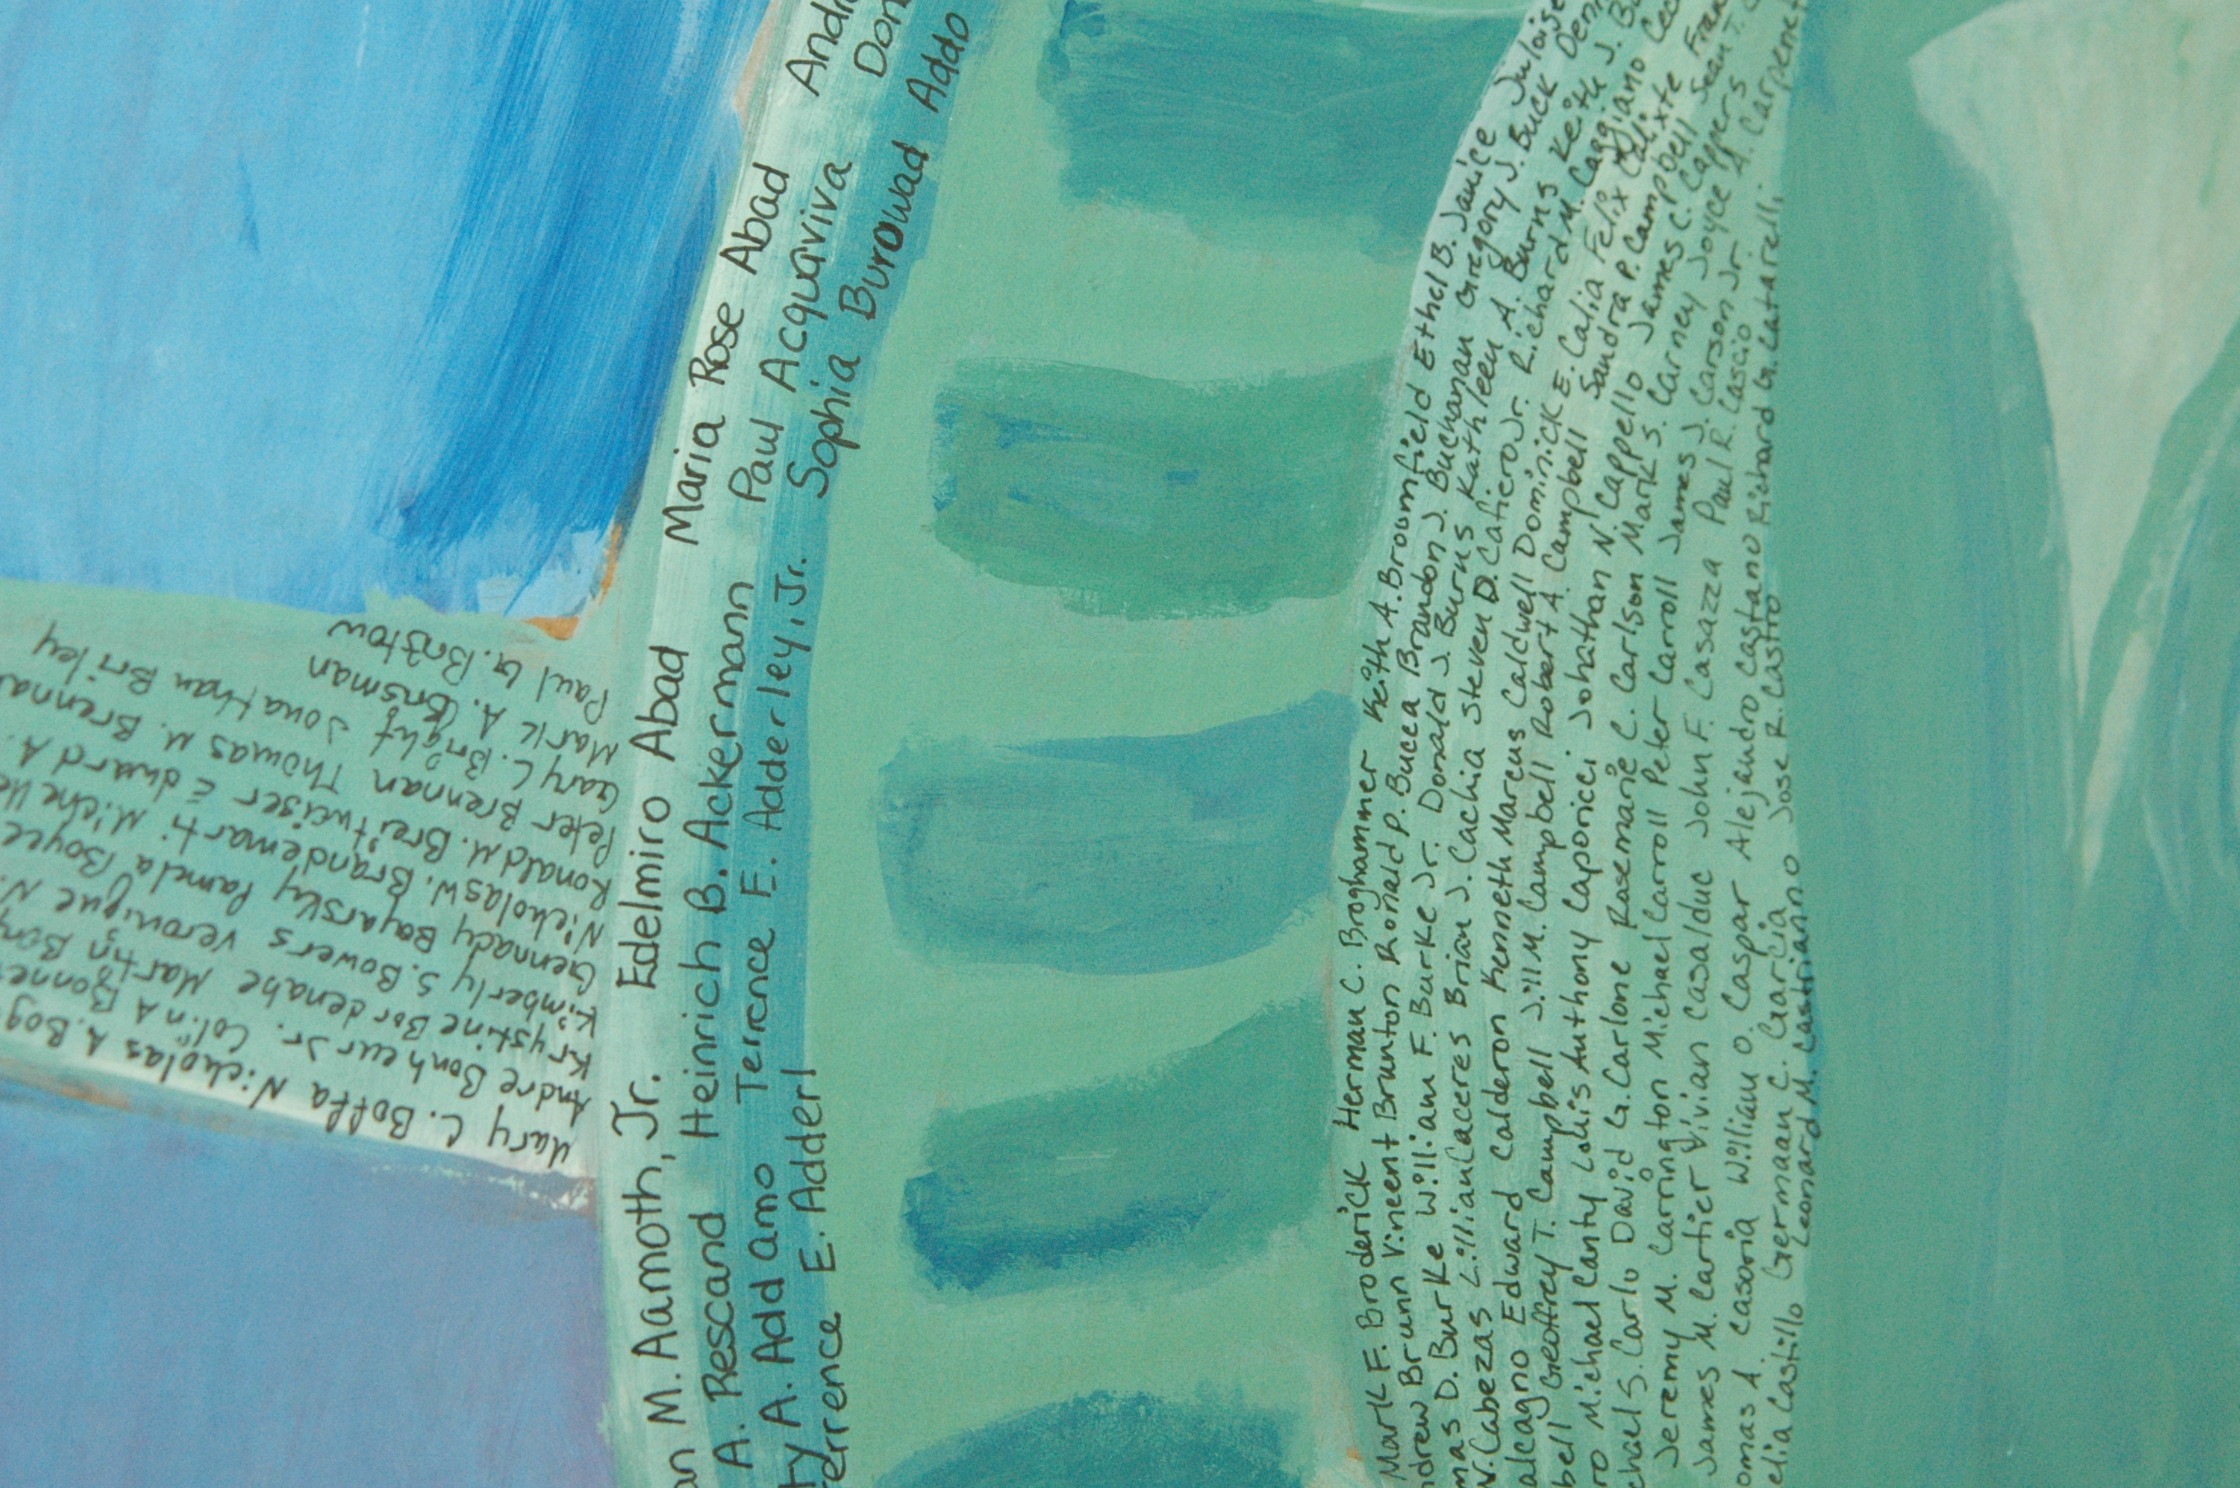 an M. Aamoth, Jr. Edelmiro Abad Maria Rose Abad
A. Rescand Heinrich B. Ackermann Paul Acquaviva
ty A. Addamo Terrence E. Adderley, Jr. Sophia Burowad Addo
errence E. Adderl
Paul G. Bristow
Mark A. Brisman
Gary L. Bright Jonathan Briley
Peter Brennan Thomas M. Brenna
Ronald M. Breitweiser Edward A.
Nicholas W. Brandemarti Michelle
Gennady Boyarsky Pamela Boyce
Kimberly S. Bowers Veronique N.
Krystine Bordenabe Martin
Andre Bonheur Jr. Colin A Bonne
Mary C. Boffa Nicholas A. Bog
Mark F. Broderick Herman C. Broghammer Keith A. Broomfield Ethel B. Janice
ndrew Brunn Vincent Brunton Ronald P. Bucca Brandon J. Buchanan Gregory J. Buck
mas D. Burke William F. Burke Jr. Donald J. Burns Kathleen A. Burns Keith J.
W. Cabezas Lillian Caceres Brian J. Cachia Steven D. Cafiero Jr. Richard M. Caggiano
alcagno Edward Calderon Kenneth Marcus Caldwell Dominick E. Calia Felix Calixte
bell Geoffrey T. Campbell Jill M. Campbell Robert A. Campbell Sandra P. Campbell Sean T.
ro Michael Canty Louis Anthony Caporicci Johathan N Cappello James C. Cappers
chael S. Carlo David G. Carlone Rosemarie C. Carlson Mark S. Carney Joyce A. Carpenet
Jeremy M. Carrington Michael Carroll Peter Carroll James J. Carson Jr.
James M. Cartier Vivian Casalduc John F. Casazza Paul R. Cascio
omas A. Casoria William O. Caspar Alejandro Castano Richard G. Catarelli,
elia Castillo Germaan C. Garcia Jose R. Castro
Leonard M. Castrianno